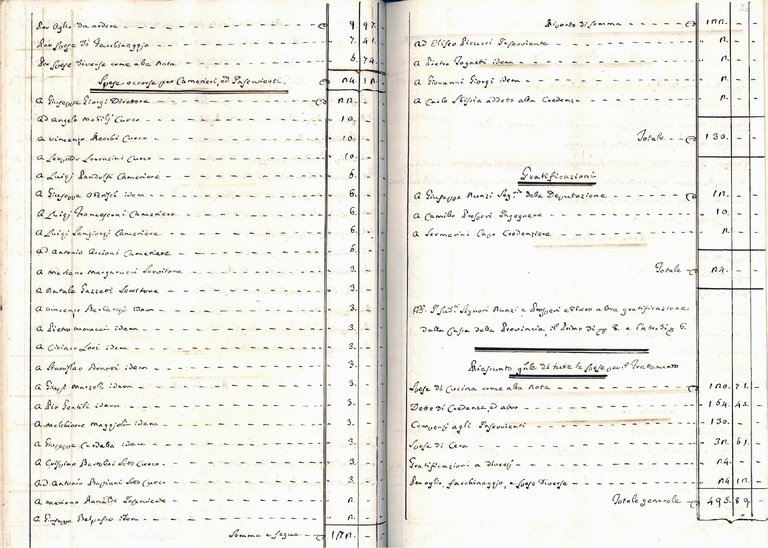 Per oglio da ardere 9. 97.
Per spese di facchinaggio 7. 41.
Per spese diverse come alla Nota 6. 74.
Spese occorse per Camerieri, ed Inservienti. 24. 12
A Giuseppe Giorgi Direttore 22.
Ad Angelo Mobilj Cuoco 10.
A Vincenzo Cuoco 10.
A Leopoldo Lorenzini Cuoco 10.
A Luigi Pandolfi Cameriere 6.
A Giuseppe idem 6.
A Luigi Francesconi Cameriere 6.
A Luigi Sangiorgi Cameriere 6.
Ad Antonio Accioni Cameriere 6.
A Mariano Margarucci Servitore 3.
A Natale Servitore 3.
A Vincenzo idem 3.
A Pietro Monacci idem 3.
A Ciriaco Lori idem 3.
A Stanislao Bonori idem 3.
A Gius.e Marzoli idem 3.
A Pio Gentili idem 3.
A Melchiorre Maggioli idem 3.
A Giuseppe Cardella idem 3.
A Crispino Bartolini Sotto Cuoco 3.
Ad Antonio Sotto Cuoco 3.
A Mariano Inserviente 2.
A Giuseppe Belpasso idem 2.
Somma e segue 122.
Riporto di somma 122.
Ad Eliseo Picucci Inserviente 2.
A Pietro Tognetti idem 2.
A Giovanni Giorgi idem 2.
A Carlo addetto alla Credenza 2.
Totale 130.
Gratificazioni
A Giuseppe Nunzi Seg.rio della Deputazione 12.
A Camillo Prosperi Ingegnere 10.
A Sermarini Capo Credenziere 2.
Totale 24.
NB. I Sud.i Signori Nunzi e Prosperi ebbero altra gratificazione
dalla Cassa della Provincia, il Primo di 8. e l'altro di 6.
Riassunto g̃nle di tutte le spese per il Trattamento
Spese di Cucina come alla Nota 120. 71.
Dette di Credenza, ed altro 164. 45.
Compensi agli Inservienti 130.
Spese di Cera 32. 61.
Gratificazioni a diversi 24.
Per oglio, facchinaggio, e spese Diverse 24. 12
Totale generale 495. 89